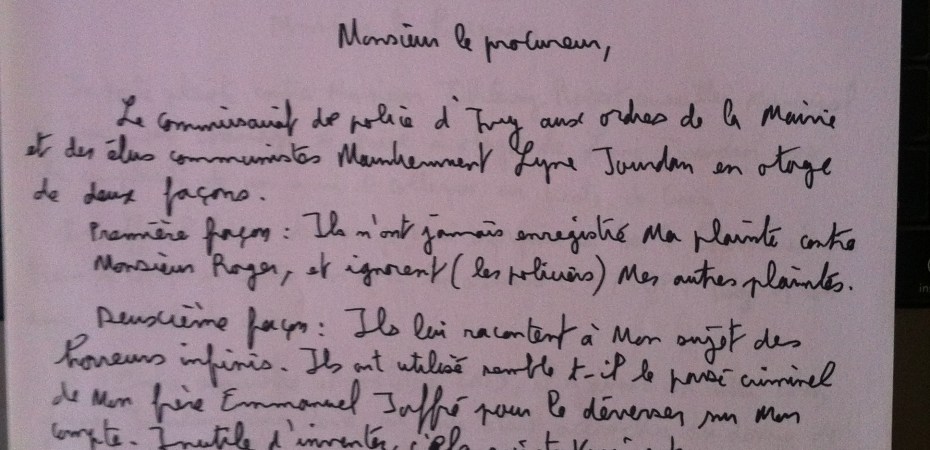 Monsieur le procureur,
Le commissariat de police d'Ivry aux ordres de la Mairie
et des élus communistes Maintiennent Lyne Jourdan en otage
de deux façons.
Première façon : Ils n'ont jamais enregistré Ma plainte contre
Monsieur Roger, et ignorent (les policiers) Mes autres plaintes.
Deuxième façon : Ils lui racontent à Mon sujet des
horreurs infinies. Ils ont utilisé semble t-il le passé criminel
de Mon frère Emmanuel Jaffré pour le déverser sur Mon
compte. Inutile d'inventer,